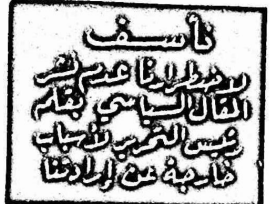 نأسف
لاضطرارنا عدم نشر
المقال السياسي بقلم
رئيس التحرير لأسباب
خارجة عن إرادتنا